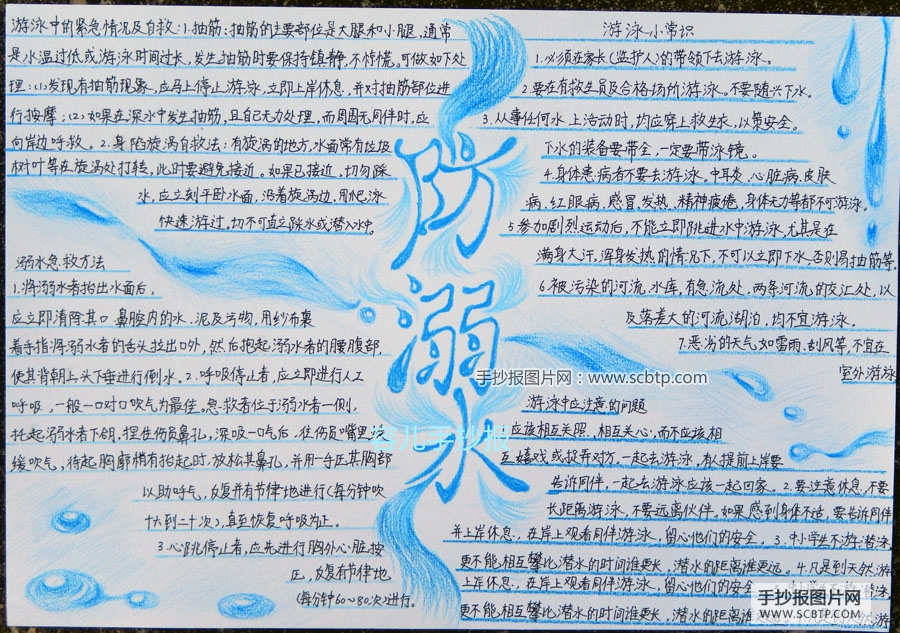 游泳中的紧急情况及自救:1.抽筋:抽筋的主要部位是大腿和小腿,通常
是水温过低或游泳时间过长,发生抽筋时要保持镇静,不惊慌,可做如下处
理:(1)发现有抽筋现象,应马上停止游泳,立即上岸休息,并对抽筋部位进
行按摩;(2)如果在深水中发生抽筋,且自己无力处理,而周围无同伴时,应
向岸边呼救。2.身陷旋涡自救法:有旋涡的地方,水面常有垃圾
树叶等在旋涡处打转,此时要避免接近。如果已接近,切勿踩
水,应立刻平卧水面,沿着旋涡边,用爬泳
快速游过,切不可直立踩水或潜入水中。
溺水急救方法
1.将溺水者抬出水面后,
应立即清除其口鼻腔内的水、泥及污物,用纱布裹
着手指将溺水者的舌头拉出口外,然后抱起溺水者的腰腹部,
使其背朝上头下垂进行倒水。2.呼吸停止者,应立即进行人工
呼吸,一般一口对口吹气为最佳。急救者位于溺水者一侧,
托起溺水者下颌,捏住伤员鼻孔,深吸一口气后,往伤员嘴里缓
缓吹气,待起胸廓稍有抬起时,放松其鼻孔,并用一手压其胸部
以助呼气,反复并有节律地进行(每分钟吹
十六到二十次),直至恢复呼吸为止。
3.心跳停止者,应先进行胸外心脏按
压,反复有节律地
(每分钟60~80次)进行。
防溺水
游泳小常识
1.必须在家长(监护人)的带领下去游泳。
2.要在有救生员及合格场所游泳。不要随兴下水。
3.从事任何水上活动时,均应穿上救生衣,以策安全。
下水的装备要带全,一定要带泳镜。
4.身体患病者不要去游泳。中耳炎、心脏病、皮肤
病、红眼病、感冒、发热、精神疲倦、身体无力等都不可游泳。
5.参加剧烈运动后,不能立即跳进水中游泳,尤其是在
满身大汗,浑身发热的情况下,不可以立即下水,否则易抽筋等。
6.被污染的河流、水库,有急流处,两条河流的交汇处,以
及落差大的河流湖泊,均不宜游泳。
7.恶劣的天气如雷雨、刮风等,不宜在
室外游泳
手抄报图片网:www.scbtp.com
游泳中应注意的问题
应该相互关照,相互关心,而不应该相
互嬉戏或捉弄对方,一起去游泳,有人提前上岸要
告诉同伴,一起去游泳应该一起回家。2.要注意休息,不要
长距离游泳,不要远离伙伴。如果感到身体不适,要告诉同伴
并上岸休息,在岸上观看同伴游泳,留心他们的安全。3.中小学生不游潜泳,
更不能相互攀比潜水的时间谁更长,潜水的距离谁更远。4.凡是到天然游
上岸休息,在岸上观看同伴游泳,留心他们的安全
更不能相互攀比潜水的时间谁更长,潜水的距离谁
手抄报图片网
WWW.SCBTP.COM